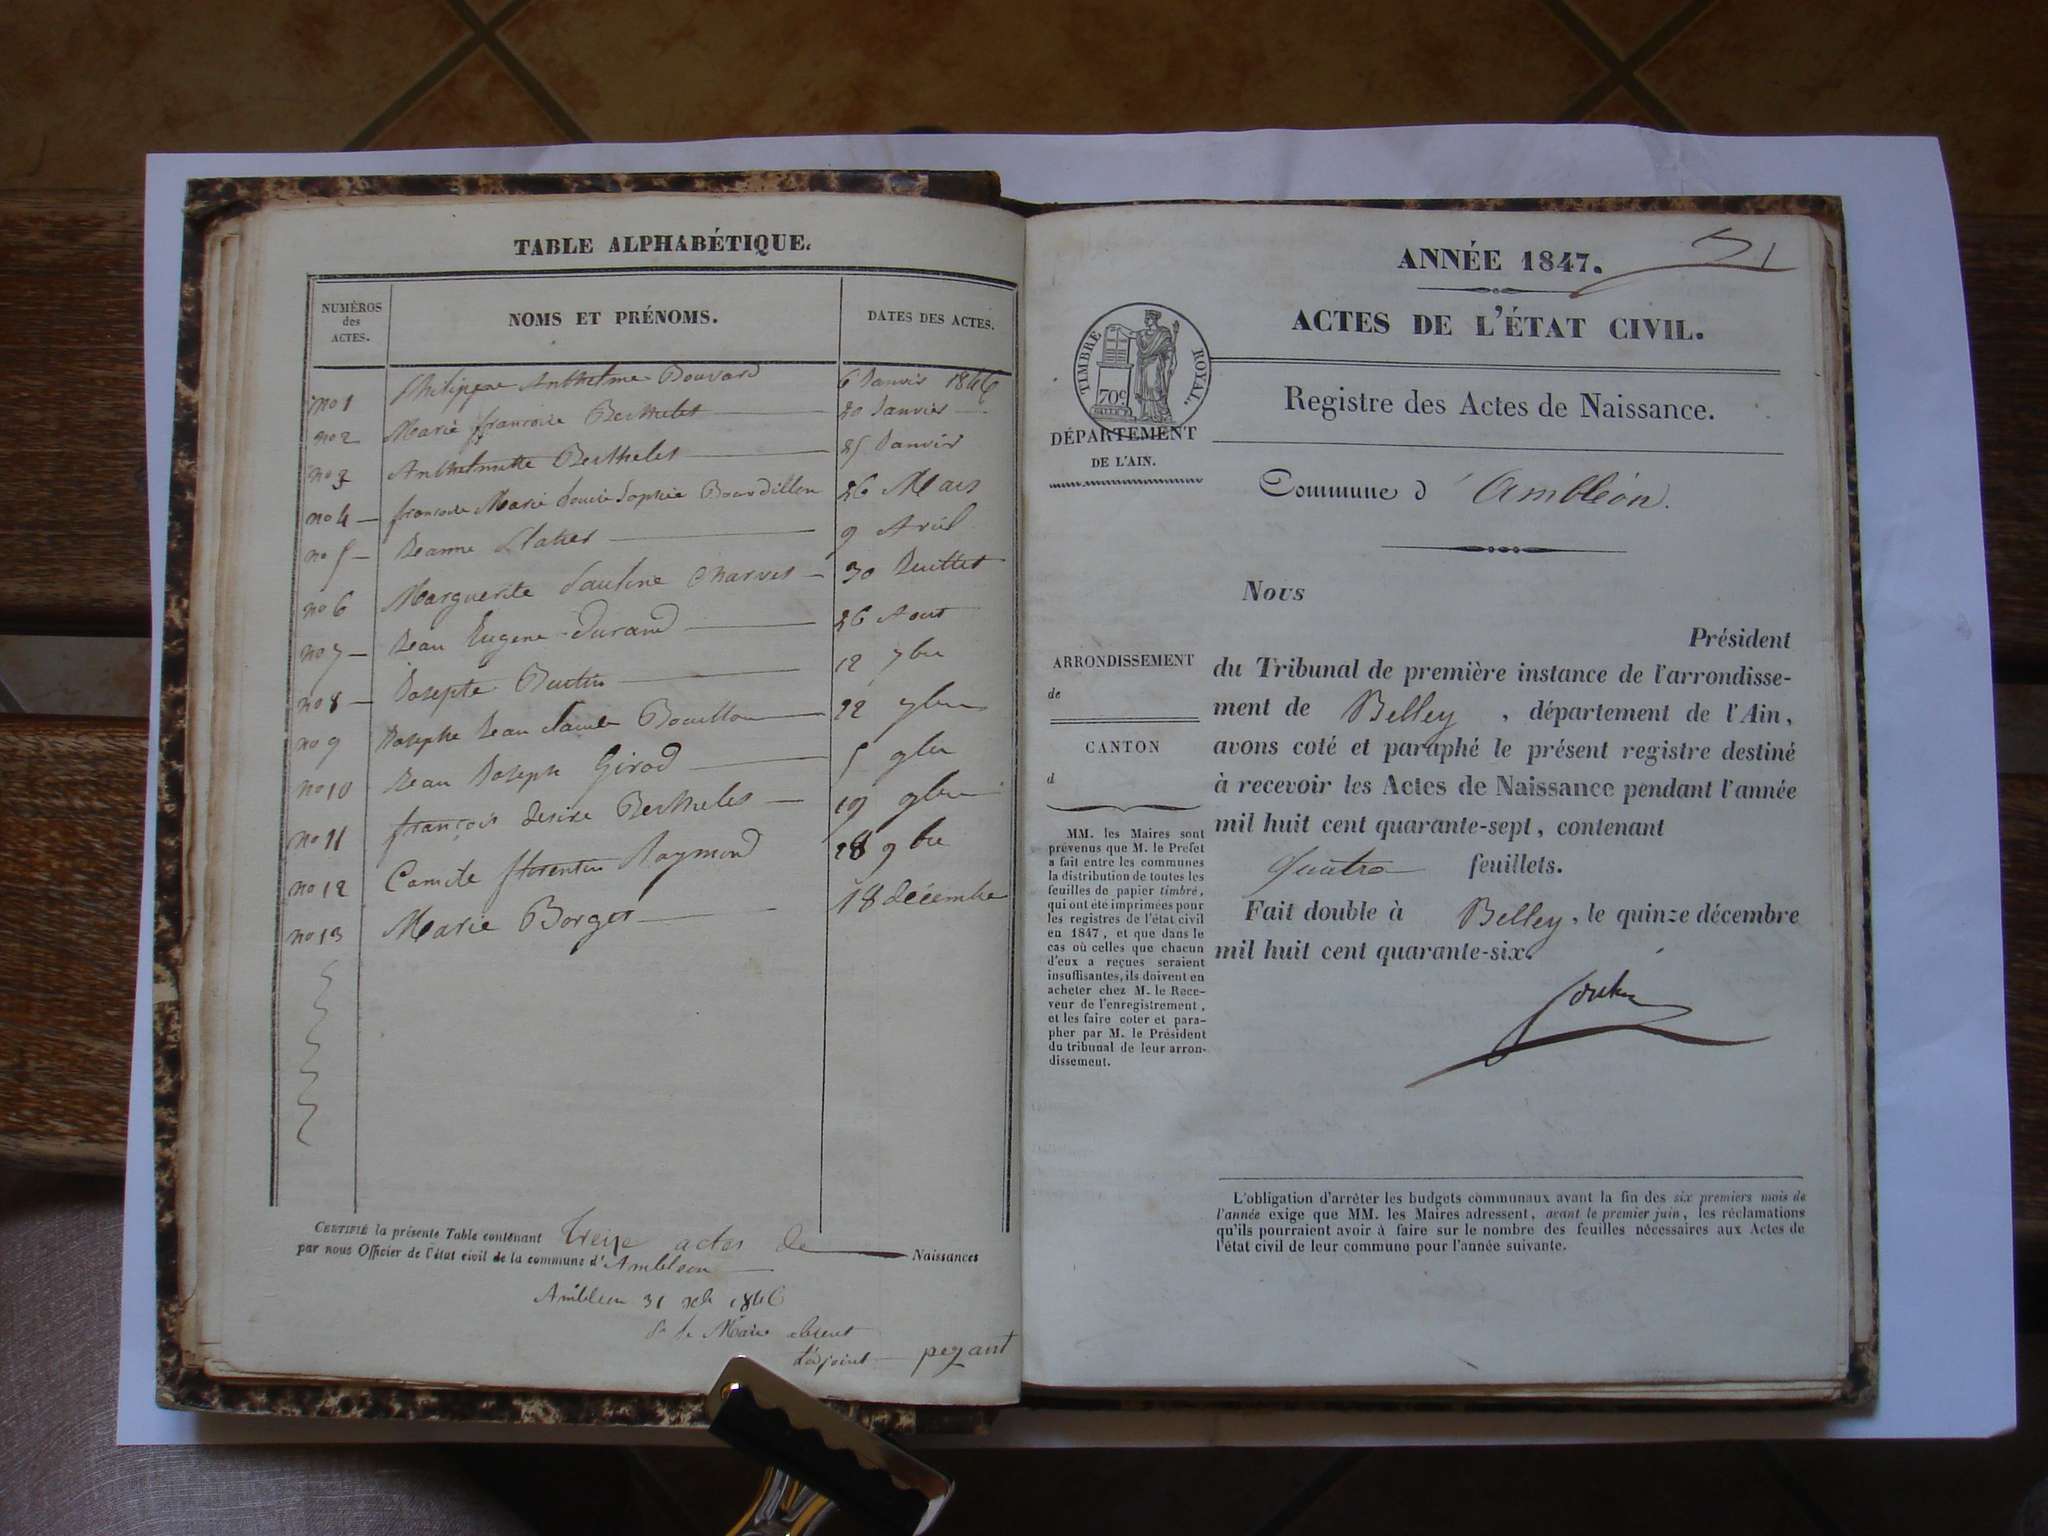 TABLE ALPHABÉTIQUE.
NUMÉROS des ACTES. NOMS ET PRÉNOMS. DATES DES ACTES.
no 1 Philippe Anthelme Bouvard 6 Janvier 1846
no 2 Marie françoise Berthelet 20 Janvier
no 3 Anthelmette Berthelet 25 Janvier
no 4 françoise Marie Louise Sophie Bourdillon 26 Mars
no 5 Jeanne 9 Avril
no 6 Marguerite Pauline Charvet 30 Juillet
no 7 Jean Eugene Durand 26 Aout
no 8 Josepte 12 7bre
no 9 Josephe Jean Claude Bouillon 22 7bre
no 10 Jean Joseph Girod 5 9bre
no 11 françois Desire Berthelet 19 9bre
no 12 Camile florentin Raymond 28 9bre
no 13 Marie Borget 18 décembre
CERTIFIÉ la présente Table contenant treize actes de Naissances
par nous Officier de l'état civil de la commune d'Ambleon
Ambleon 31 1846
Le Maire absent
L'adjoint peyant
ANNÉE 1847.
ACTES DE L'ÉTAT CIVIL.
TIMBRE ROYAL.
70c
DÉPARTEMENT
DE L'AIN.
Registre des Actes de Naissance.
Commune d'Ambléon.
Nous
Président
du Tribunal de première instance de l'arrondisse-
ment de Belley, département de l'Ain,
avons coté et paraphé le présent registre destiné
à recevoir les Actes de Naissance pendant l'année
mil huit cent quarante-sept, contenant
quatre feuillets.
Fait double à Belley, le quinze décembre
mil huit cent quarante-six.
ARRONDISSEMENT
de
CANTON
d
MM. les Maires sont
prévenus que M. le Préfet
a fait entre les communes
la distribution de toutes les
feuilles de papier timbré,
qui ont été imprimées pour
les registres de l'état civil
en 1847, et que dans le
cas où celles que chacun
d'eux a reçues seraient
insuffisantes, ils doivent en
acheter chez M. le Rece-
veur de l'enregistrement,
et les faire coter et para-
pher par M. le Président
du tribunal de leur arron-
dissement.
L'obligation d'arrêter les budgets communaux avant la fin des six premiers mois de
l'année exige que MM. les Maires adressent, avant le premier juin, les réclamations
qu'ils pourraient avoir à faire sur le nombre des feuilles nécessaires aux Actes de
l'état civil de leur commune pour l'année suivante.